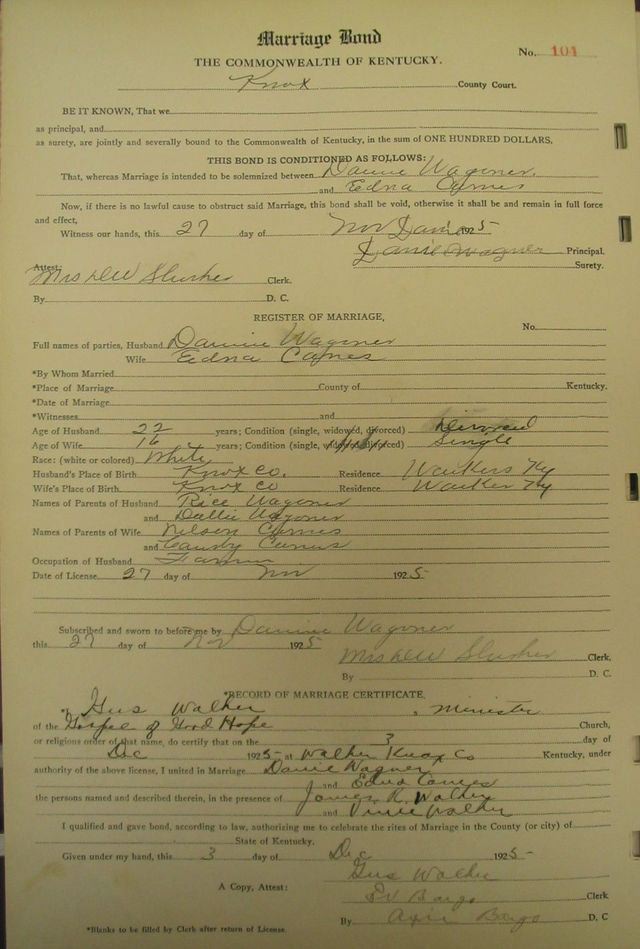 Marriage Bond
No. 101
THE COMMONWEALTH OF KENTUCKY.
Knox County Court.
BE IT KNOWN, That we
as principal, and
as surety, are jointly and severally bound to the Commonwealth of Kentucky, in the sum of ONE HUNDRED DOLLARS,
THIS BOND IS CONDITIONED AS FOLLOWS:
That, whereas Marriage is intended to be solemnized between Wagoner
and Edna
Now, if there is no lawful cause to obstruct said Marriage, this bond shall be void, otherwise it shall be and remain in full force
and effect,
Witness our hands, this 27 day of Nov 1925
Wagner Principal.
Surety.
Attest:
Mrs Slusher Clerk.
By D. C.
REGISTER OF MARRIAGE,
No.
Full names of parties, Husband Wagoner
Wife Edna
*By Whom Married
*Place of Marriage County of Kentucky.
*Date of Marriage
*Witnesses and
Age of Husband 22 years; Condition (single, widowed, divorced) Divorced
Age of Wife 16 years; Condition (single, widowed, divorced) Single
Race: (white or colored) White
Husband's Place of Birth Knox Co. Residence Walkers Ky
Wife's Place of Birth Knox Co Residence Walker Ky
Names of Parents of Husband Rice Wagoner
and Dallie Wagoner
Names of Parents of Wife Nelson
and
Occupation of Husband Farmer
Date of License 27 day of Nov 1925
Subscribed and sworn to before me by Wagoner
this 27 day of Nov 1925
Mrs Slusher Clerk,
By D. C.
*RECORD OF MARRIAGE CERTIFICATE,
*I, Gus Walker, Minister
of the Gospel of Good Hope Church,
or religious order of that name, do certify that on the 3 day of
Dec 1925 at Walker Knox Co Kentucky, under
authority of the above license, I united in Marriage Wagner
and Edna
the persons named and described therein, in the presence of James R. Walker
and Walker
I qualified and gave bond, according to law, authorizing me to celebrate the rites of Marriage in the County (or city) of
State of Kentucky.
Given under my hand, this 3 day of Dec 1925
Gus Walker
A Copy, Attest: Bargo Clerk
By Bargo D. C
*Blanks to be filled by Clerk after return of License.